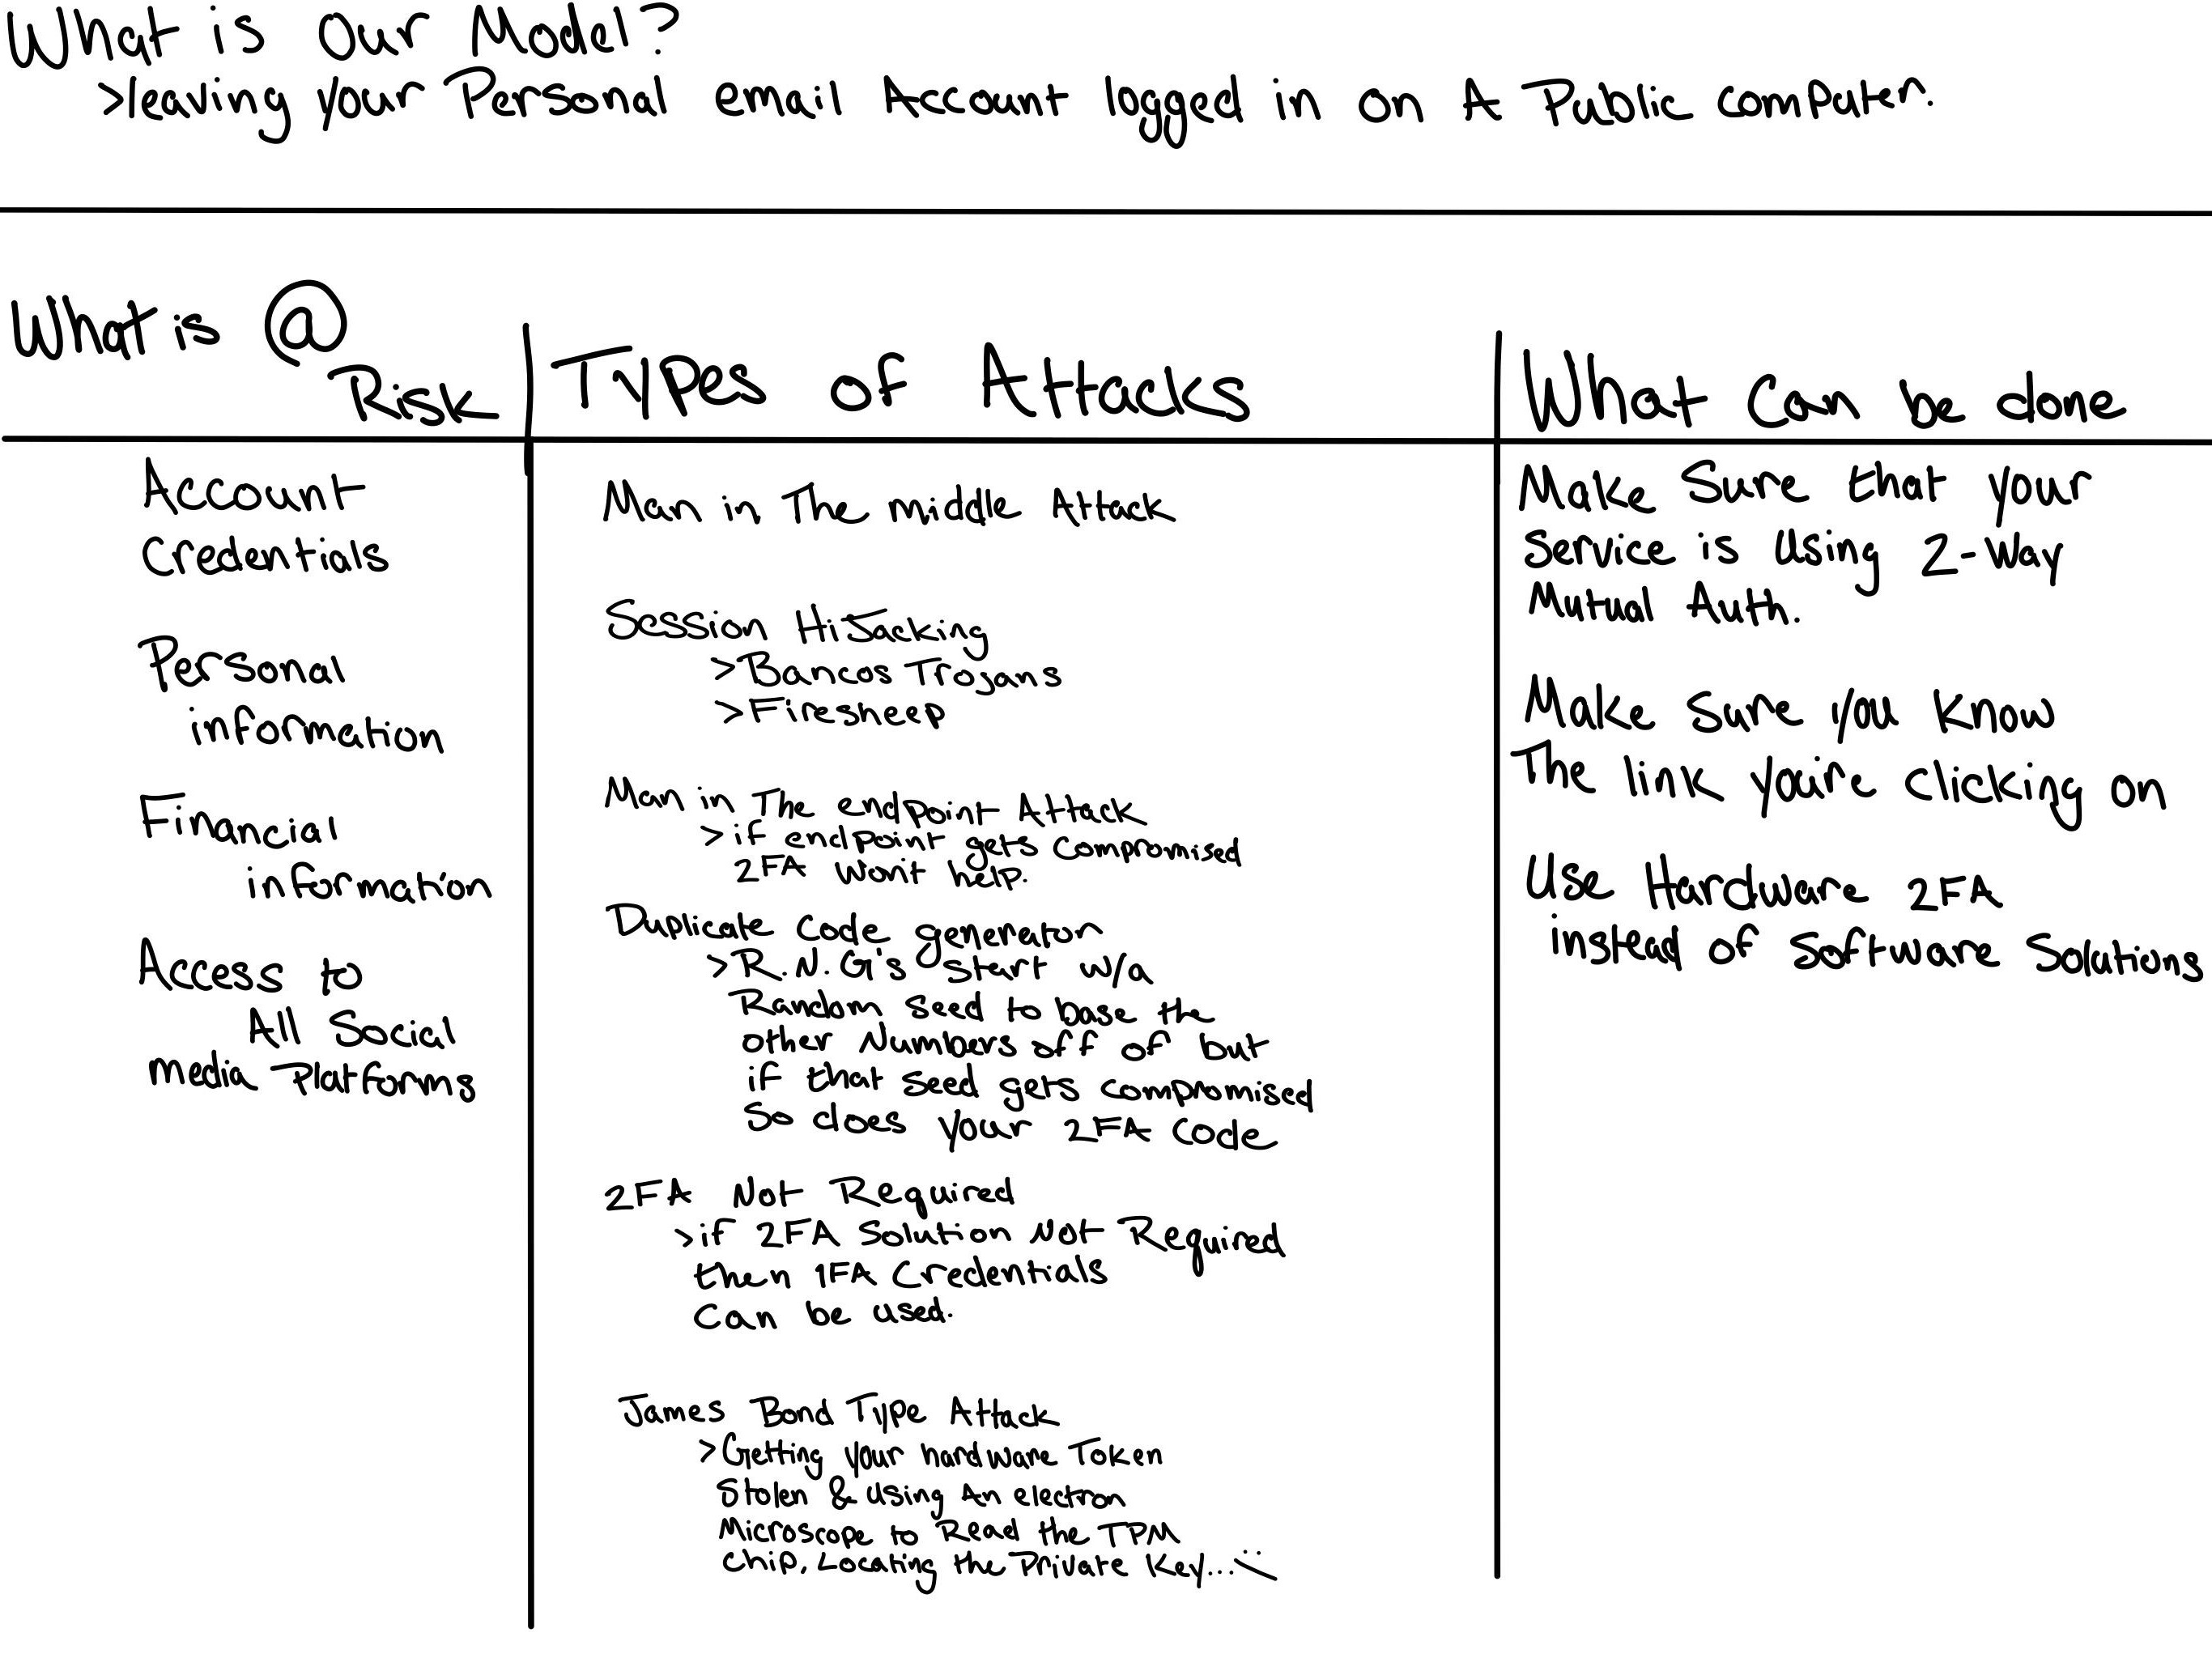 What is Our Model?
>leaving your Personal email Account logged in on A Public computer.
What is @
Risk
Types of Attacks
What Can be done
Account
Credentials
Personal
information
Financial
information
Access to
All Social
media Platforms
Man in The middle Attack
Session HiJacking
>Bancos Trojans
>Firesheep
Man in The endpoint Attack
>if endpoint gets compromised
2FA won't help.
Duplicate Code generator
>R.N.G's start w/a
Random seed to base the
other Numbers off of but
if that seed gets compromised
So does your 2FA Code
2FA Not Required
>if 2FA Solution Not Required
then 1FA Credentials
Can be used.
James Bond Type Attack
>Getting your hardware Token
Stolen & using An electron
Microscope to Read the TPM
chip, Locating the Private Key...
Make Sure that your
Service is Using 2-Way
Mutual Auth.
Make sure you Know
The link you're clicking on
Use Hardware 2FA
instead of Software Solutions